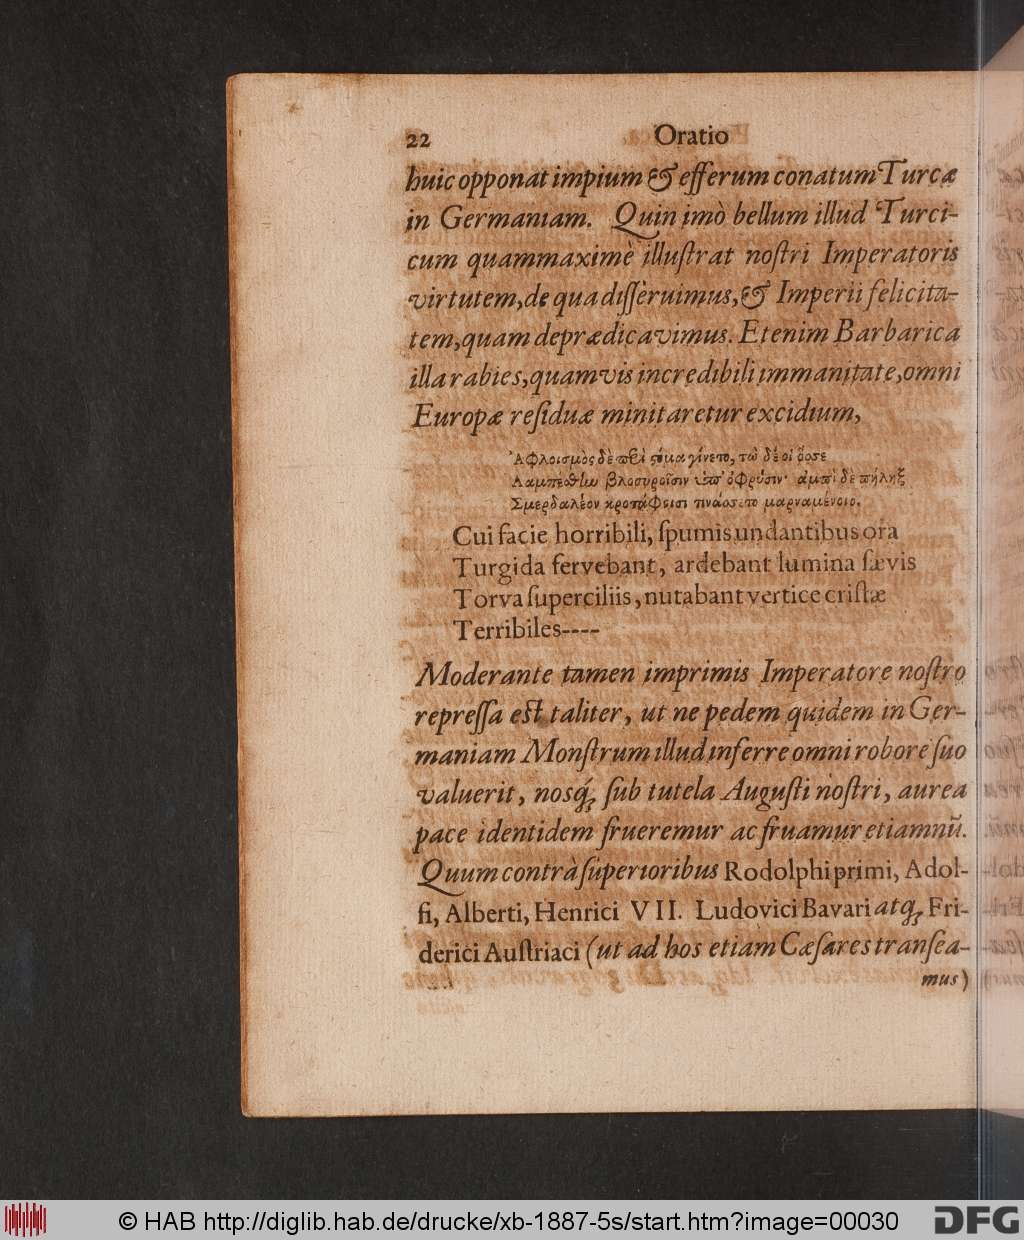 22 Oratio
huic opponat impium & efferum conatum Turcæ
in Germaniam. Quin imò bellum illud Turci-
cum quammaximè illuſtrat noſtri Imperatoris
virtutem, de qua diſſeruimus, & Imperii felicita-
tem, quam deprædicavimus. Etenim Barbarica
illa rabies, quamvis incredibili immanitate, omni
Europæ reſiduæ minitaretur excidium,
Ἀφλοισμὸς δὲ περὶ ϛόμα γίνετο, τὼ δέ οἱ ὄσσε
Λαμπέσθην βλοσυροῖσιν ὑπ' ὀφρύσιν· ἀμφὶ δὲ πήληξ
Σμερδαλέον κροτάφοισι τινάσσετο μαρναμένοιο.
Cui facie horribili, ſpumis undantibus ora
Turgida fervebant, ardebant lumina ſævis
Torva ſuperciliis, nutabant vertice criſtæ
Terribiles----
Moderante tamen imprimis Imperatore noſtro
repreſſa eſt taliter, ut ne pedem quidem in Ger-
maniam Monſtrum illud inferre omni robore ſuo
valuerit, nosq́; ſub tutela Auguſti noſtri, aurea
pace identidem frueremur ac fruamur etiamnū.
Quum contrà ſuperioribus Rodolphi primi, Adol-
fi, Alberti, Henrici VII. Ludovici Bavari atq; Fri-
derici Auſtriaci (ut ad hos etiam Cæſares tranſea-
mus)
© HAB http://diglib.hab.de/drucke/xb-1887-5s/start.htm?image=00030
DFG